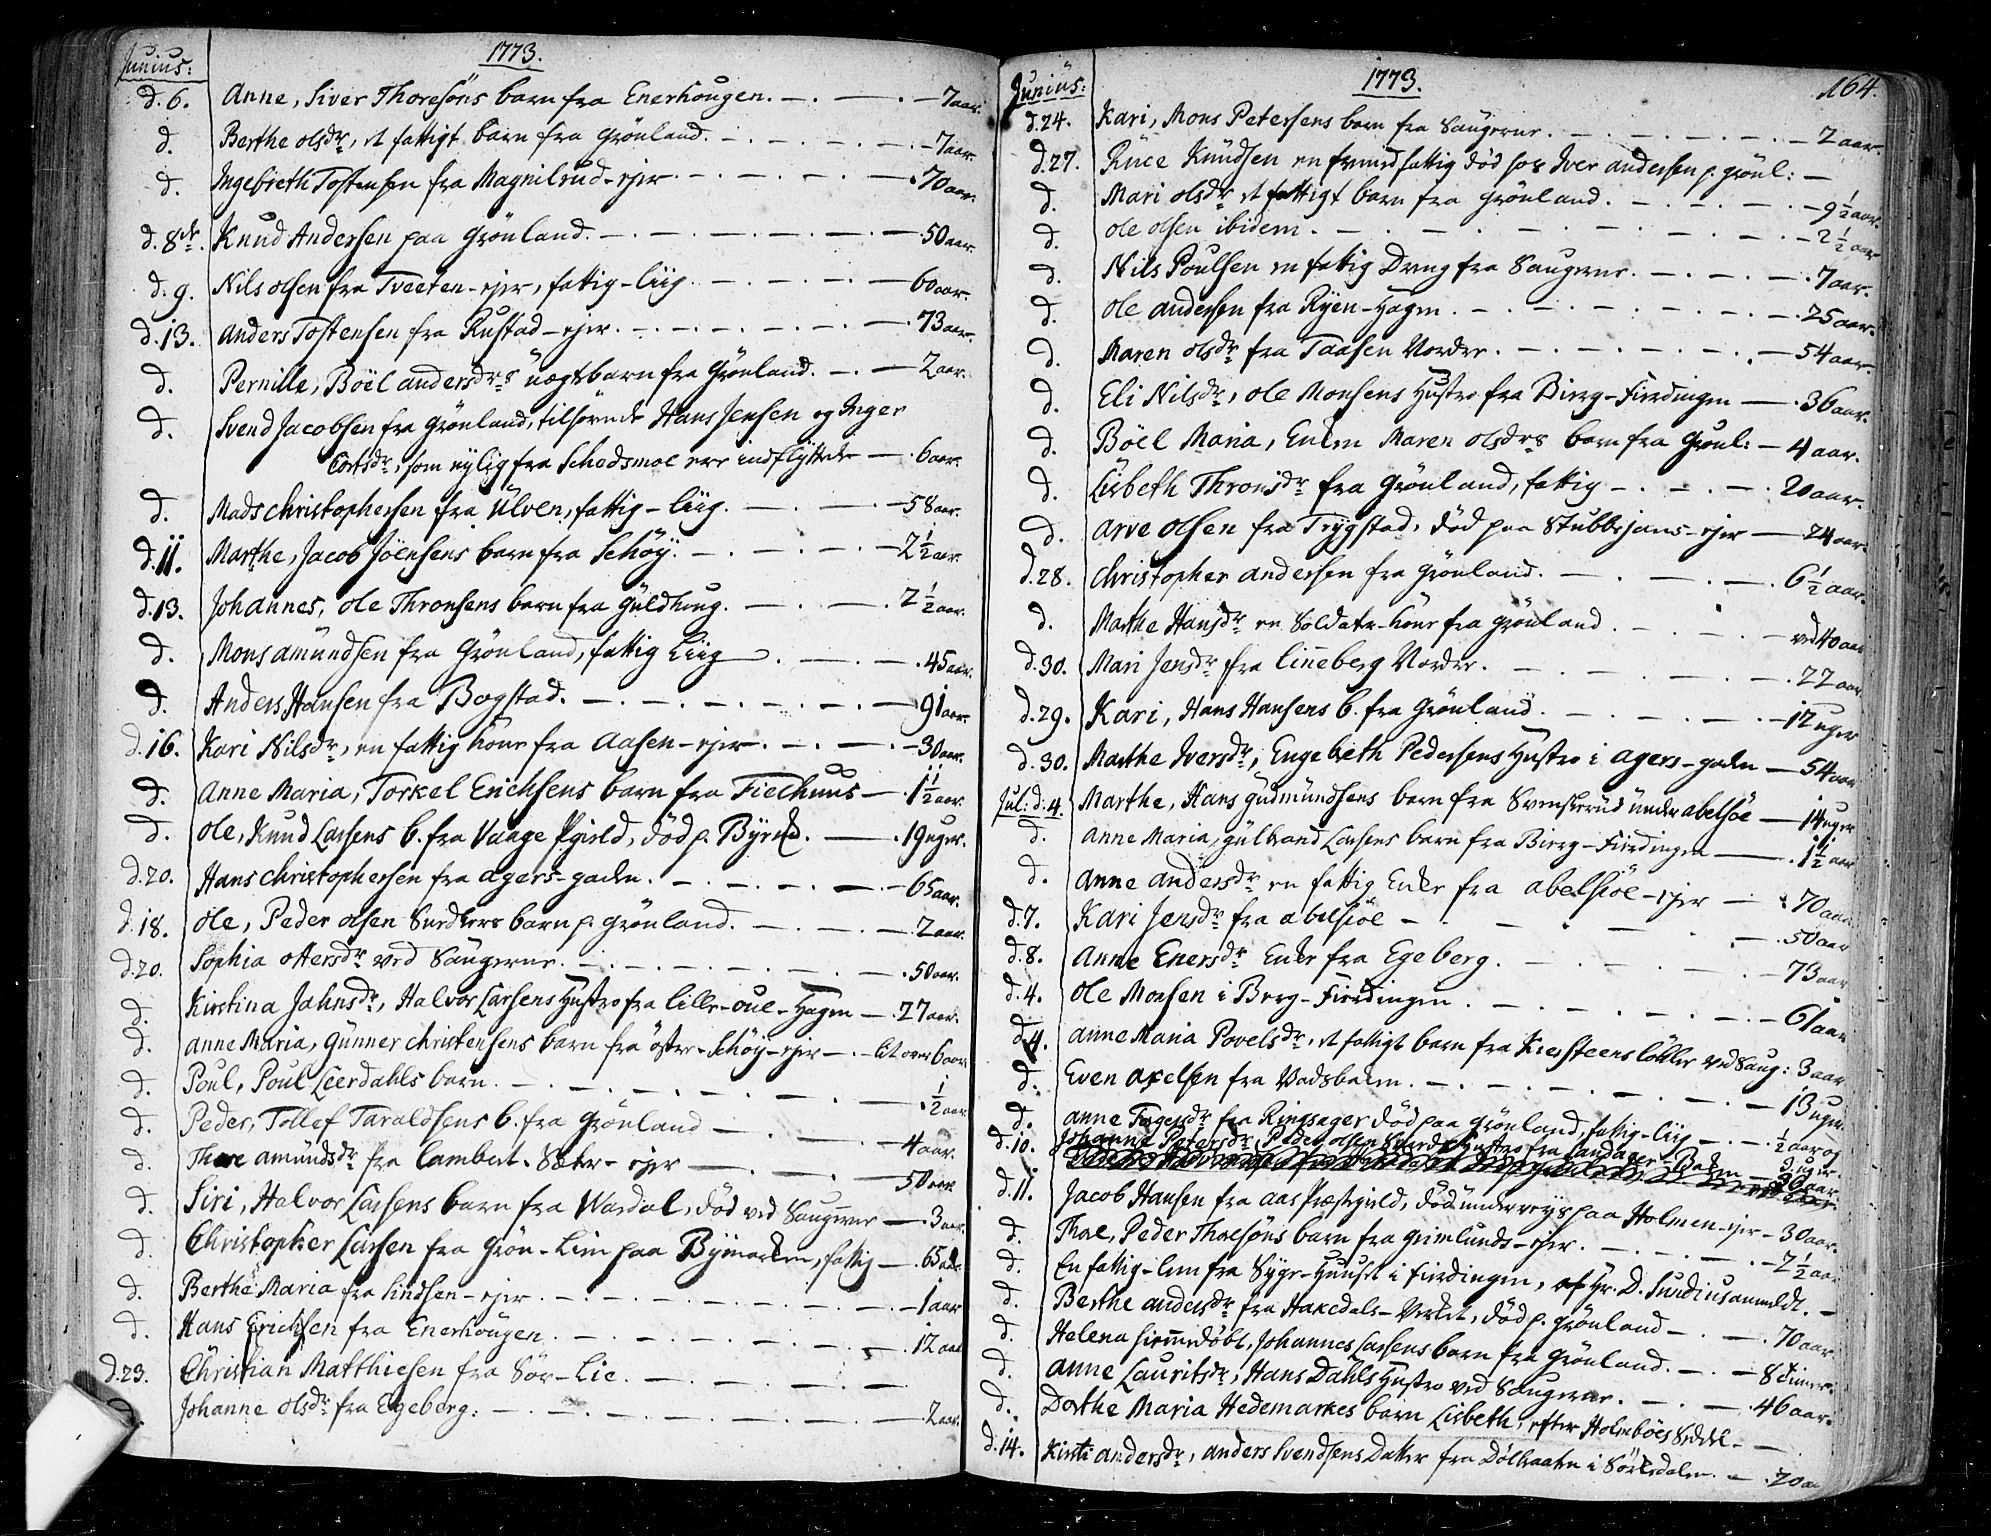 Junius: 1773.
d. 6. Anne, Siver Thoresöns barn fra Enerhougen. 7 aar.
d. Berthe olsdr, et fattigt barn fra Grönland. 7 aar.
d. Ingebreth Tostensen fra Magnilrud-ejer 70 aar.
d. 8de. Knud Andersen paa Grönland. 50 aar.
d. 9. Nils olsen fra Tveeten-ejer, fattig-Liig. 60 aar.
d. 13. Anders Tostensen fra Rustad-ejer. 73 aar.
d. Pernille, Böel andersdrs uægte barn fra Grönland. 2 aar.
d. Svend Jacobsen fra Grönland, tilhörende Hans Jensen og Inger
som nylig fra Schedsmoe ere indflyttede 6 aar.
d. Mads christophersen fra Ulven, fattig-Liig. 58 aar.
d. 11. Marthe, Jacob Joensens barn fra Schöy. 2 1/2 aar.
d. 13. Johannes, Ole Thronsens barn fra Guldhoug. 2 1/2 aar.
d. Mons amundsen fra Grönland, fattig Liig 45 aar.
d. Anders Hansen fra Bogstad. 91 aar.
d. 16. Kari Nilsdr, en fattig kone fra Aasen-ejer. 30 aar.
d. Anne Maria, Torkel Erichsens barn fra Fielhuus 1 1/2 aar.
d. Ole, Knud Larsens b. fra Vaage Pgield, död p. 19 uger.
d. 20. Hans christophersen fra agers-gaden. 65 aar.
d. 18. Ole, Peder olsen barn p. Grönland. 2 aar.
d. 20. Sophia ottersdr ved Saugerne. 50 aar.
d. Kirstina Jahnsdr, Halvor Larsens Hustro fra Lille-oue-Hagen 27 aar.
d. Anne Maria, Gunner christensens barn fra östre-Schöy-ejer lit over 6 aar.
d. Poul, Poul Leerdahls barn. 1/2 aar.
d. Peder, Tollef Taraldsens b. fra Grönland 4 aar.
d. Thore amundsdr fra Lambert-Sæter-ejer 50 aar.
d. Siri, Halvor Larsens barn fra Wardal, död ved Saugerne 3 aar.
d. Christopher Larsen fra Grön-Liin paa Bymarken, fattig 65 aar.
d. Berthe Maria fra Lindsen-ejer. 1 aar
d. Hans Erichsen fra Enerhougen. 12 aar
d. 23. Christian Matthiesen fra Sör-Lie.
d. Johanne olsdr fra Egeberg: 2 aar.
Junius: 1773. 164.
d. 24. Kari, Mons Petersens barn fra Saugerne. 2 aar.
d. 27. Ruce Knudsen en fremmed fattig död hos Iver andersen p. Grönl:
d. Mari olsdr et fattigt barn fra Grönland. 9 1/2 aar.
d. Ole olsen ibidem. 2 1/2 aar
d. Nils Poulsen en fattig Dreng fra Saugerne. 7 aar.
d. Ole andersen fra Ryen-Hagen. 25 aar.
d. Maren olsdr fra Taasen Nordre. 54 aar.
d. Eli Nilsdr, Ole Monsens Hustro fra Bierg-Fierdingen 36 aar.
d. Böel Maria, Enken Maren olsdrs barn fra Grönl: 4 aar.
d. Lisbeth Thronsdr fra Grönland, fattig 20 aar.
d. Arve olsen fra Trygstad, död paa Stubbljans-ejer 24 aar.
d. 28. Christopher andersen fra Grönland. 6 1/2 aar.
d. Marthe Hansdr en Soldate-kone fra Grönland. ved 40 aar
d. 30. Mari Jensdr fra Linneberg Nordre. 22 aar
d. 29. Kari, Hans Hansens b. fra Grönland. 12 uger
d. 30. Marthe Iversdr, Engebreth Pedersens Hustro i agers-gaden 54 aar
Jul: d. 4. Marthe, Hans Gudmundsens barn fra Svenskerud under abelsöe 14 uger
d. Anne Maria, Gulbrand Larsens barn fra Bierg-Fierdingen 1 1/2 aar
d. Anne andersdr en fattig Enke fra abelsiöe-ejer 70 aar
d. 7. Kari Jensdr fra abelsiöe 50 aar
d. 8. Anne Enersdr Enke fra Egeberg. 73 aar
d. 4. Ole Monsen i Berg-Fierdingen. 61 aar
d. 4. Anne Maria Povelsdr, et fattigt barn fra Kiersteens lökke ved Saug: 3 aar
d. Even axelsen fra Vadsbaken. 13 uger.
d. Anne fra Ringsager död paa Grönland, fattig-liig 1/2 aar og
uger.
d. 10. Johanne Petersdr, Peder olsen Hustro fra 30 aar.
d. 11. Jacob Hansen fra aas Præstgield, död underveys paa Holmen-ejer 30 aar.
d. Thoe, Peder Thoesöns barn fra Grimlunds-ejer. 2 1/2 aar
d. En fattig-lem fra Syge-Huuset i Fierdingen, af Hr. D. Sundius anmeldt.
d. Berthe andersdr fra Hakedals-Verket, död p. Grönland 70 aar
d. Helena hiemedöbt, Johannes Larsens barn fra Grönland. 8 timer.
d. Anne Lauritsdr, Hans Dahls Hustro ved Saugerne. 46 aar.
d. Dorthe Maria Hedemarkes barn Lisbeth, efter Holmboes Seddel.
d. 14. Kirsti andersdr, anders Svendsens Datter fra i Sörkedalen. 20 aar